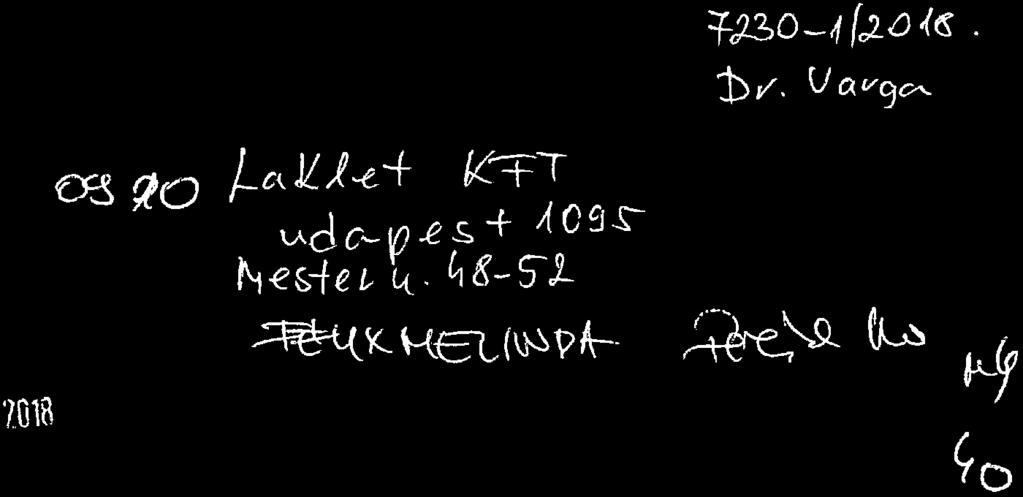 7230-1/2018.
Dr. Varga
09 20 Laklet KFT
udapest 1095
Mester u. 48-52
MELINDA
2018
40